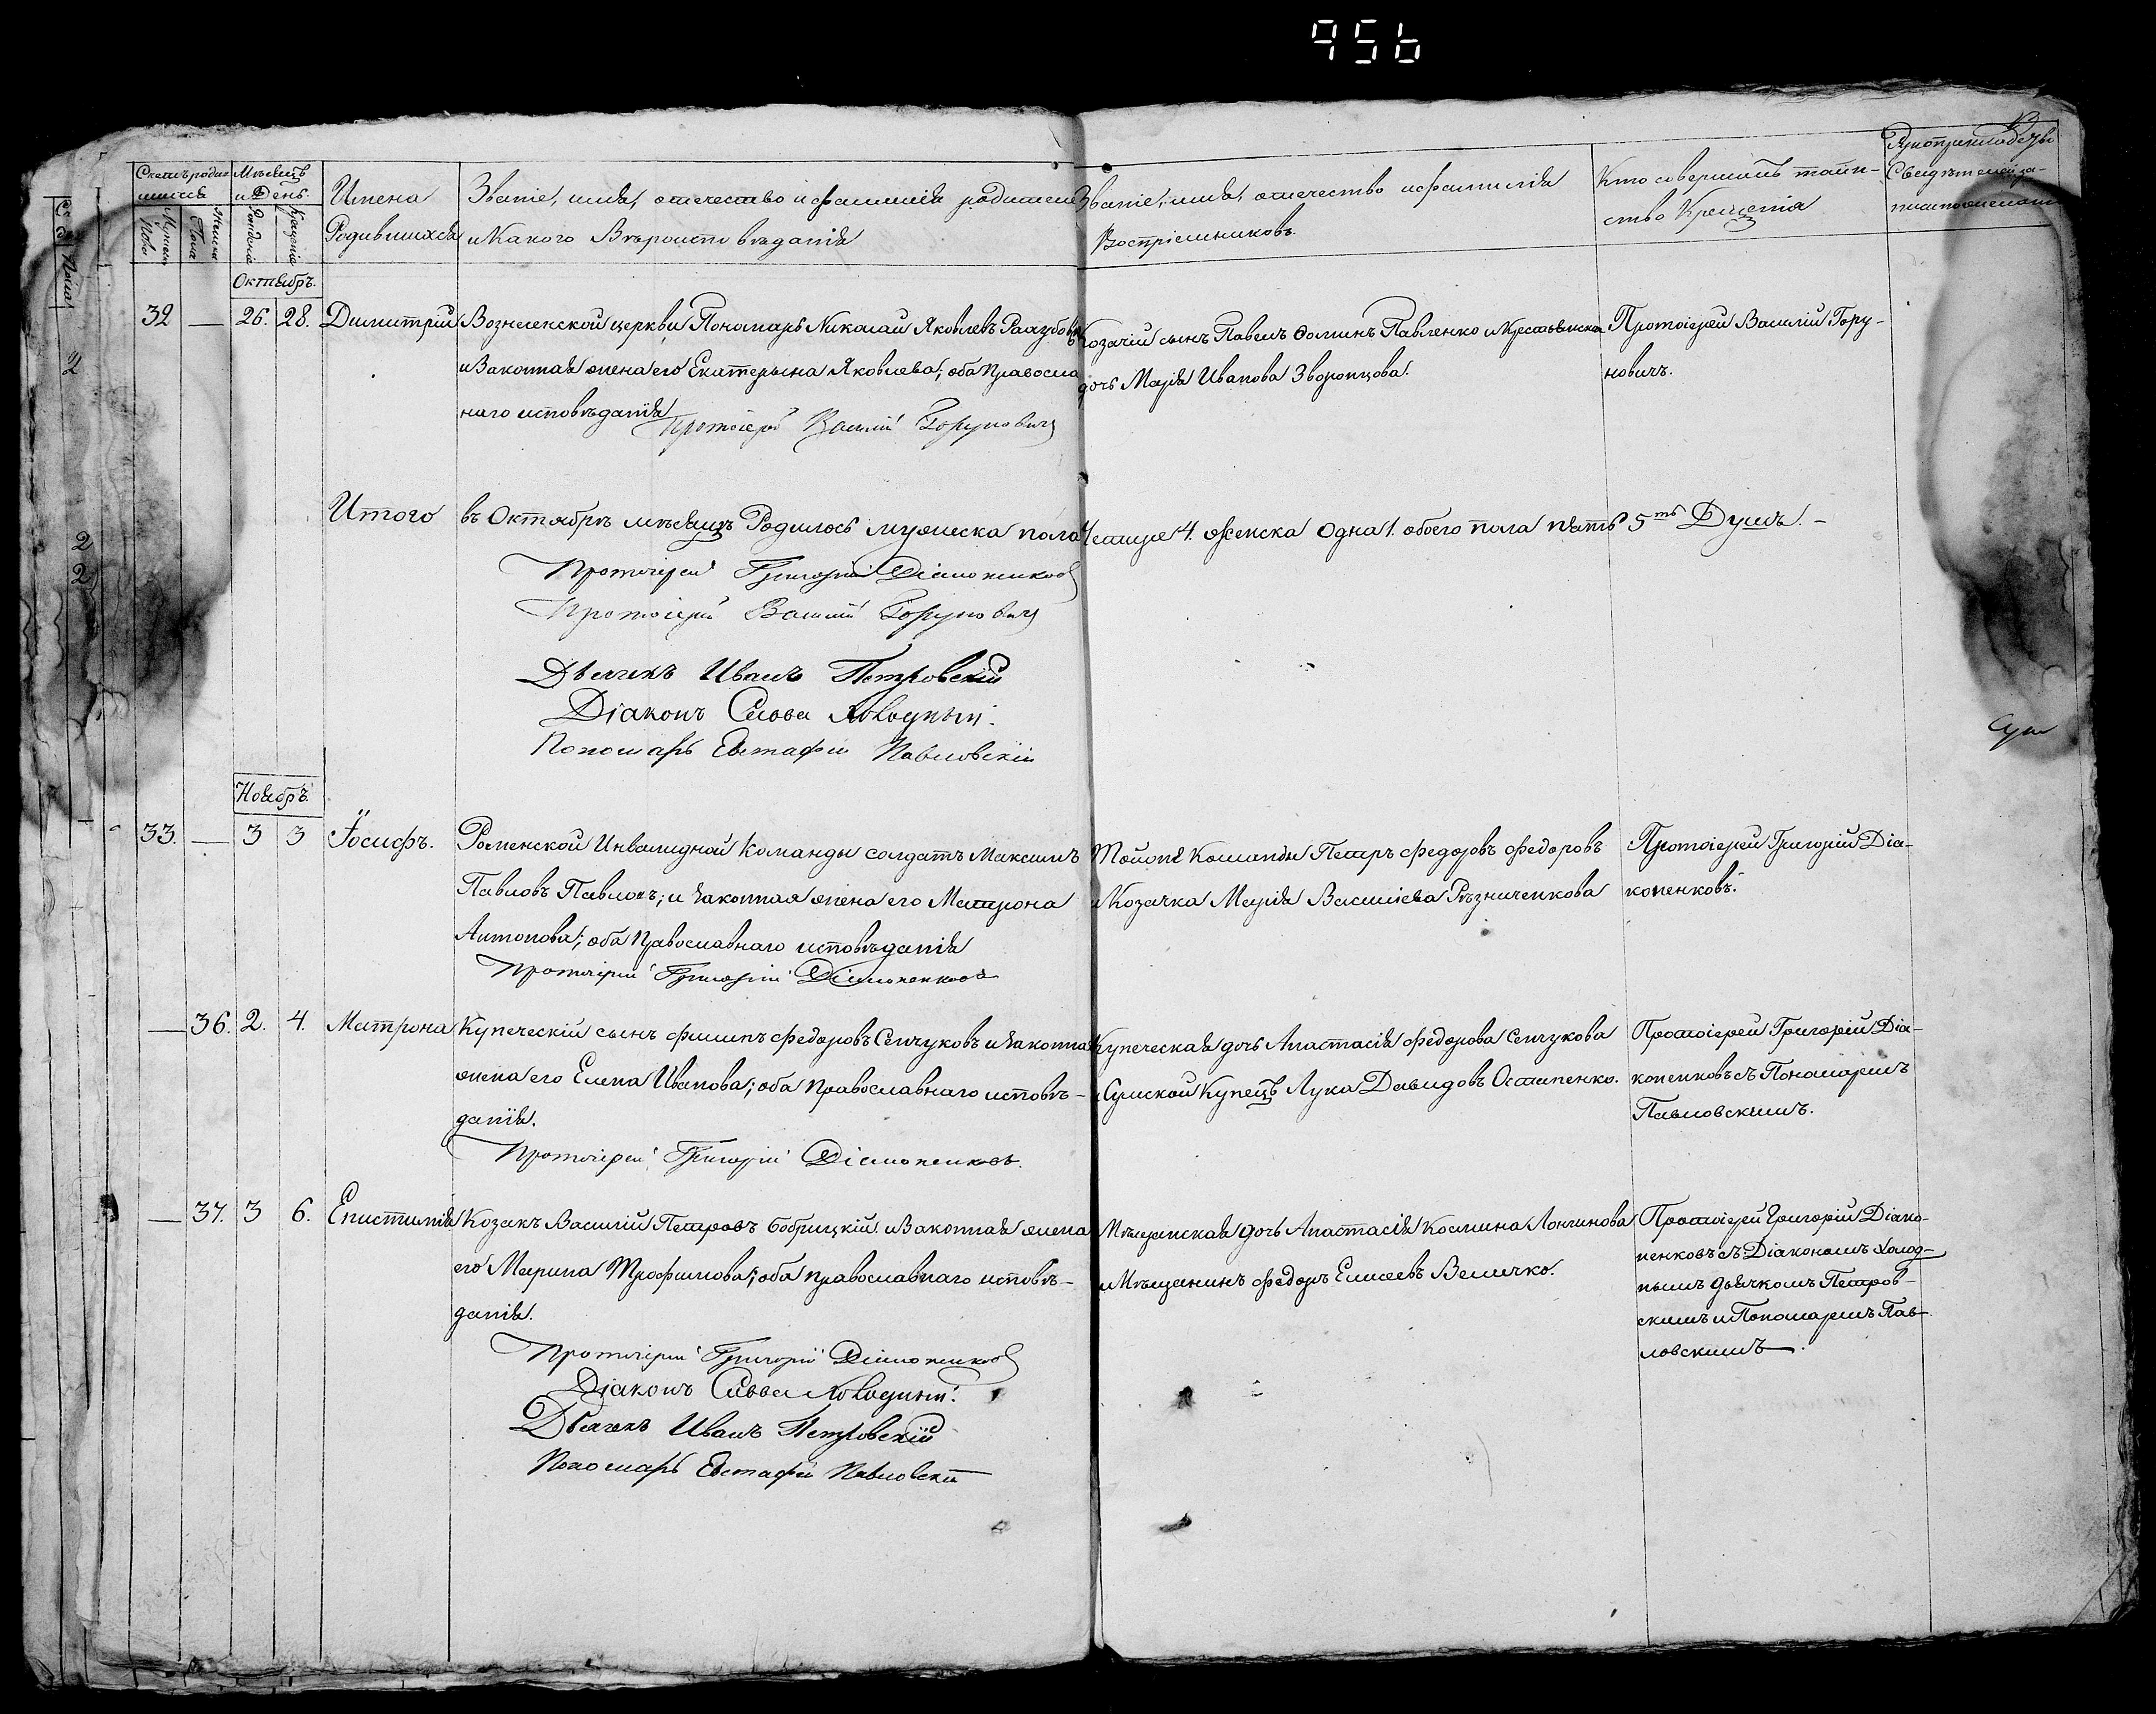 956
Счетъ родив
шихся
Мѣсяцъ
и День.
Имена
Родившихся
Званіе, имя, отечество и фамилія родителей
и Какого Вѣроисповѣданія
Званіе, имя, отечество и фамилія
Воспріемниковъ.
Кто совершалъ таин-
ство Крещенія
Рукоприкладство
Свидѣтелей за-
Мужеск
Пола
Женска
Рожденія
Крещенія
Октябрь.
32 — 26. 28. Димитрій Вознесенской церкви Пономарь Николай Яковлевъ
и Законная жена его Екатерына Яковлева; оба Правосла
наго исповѣданія
Протоіерей Василій Горуновичъ
Козачій сынъ Павелъ Ѳоминъ Павленко и Крестьянска
дочь Марія Иванова Зворонцова.
Протоіерей Василій Гору-
новичъ.
Итого въ Октябрѣ мѣсяцѣ Родилось мужеска пола Четыре 4. женска Одна 1. обоего пола пять 5ть Душъ. —
Протоіерей Григорій Діаконенковъ
Протоіерей Василій Горуновичъ
Дьячекъ Иванъ Петровскій
Діаконъ Савва Холодный.
Пономарь Евстафій Павловскій
2
2
2
Сум
Ноябрь.
33. — 3 3 Іосифъ. Роменской Инвалидной Команды солдатъ Максимъ
Павловъ Павловъ; и законная жена его Матрона
Антонова; оба Православнаго исповѣданія
Протоіерей Григорій Діаконенковъ
Тойоже Команды Петръ Федоровъ Федоровъ
и Козачка Марія Василіева Рѣзниченкова
Протоіерей Григорій Діа-
коненковъ.
— 36. 2. 4. Матрона Купеческій сынъ Филипъ Федоровъ Сенчуковъ и законна
жена его Елена Иванова; оба Православнаго исповѣ-
данія.
Протоіерей Григорій Діаконенковъ.
Купеческая дочь Анастасія Федорова Сенчукова
и Сумской Купецъ Лука Давидовъ Остапенко.
Протоіерей Григорій Діа-
коненковъ съ Пономаремъ
Павловскимъ.
— 37. 3 6. Епистимія Козакъ Василій Петровъ Бобрицкій. и Законная жена
его Марина Трофимова; оба православнаго исповѣ-
данія.
Протоіерей Григорій Діаконенковъ
Діаконъ Савва Холодный.
Дьячекъ Иванъ Петровскій
Пономарь Евстафій Павловскій
Мѣщанская дочь Анастасія Космина Лончинова
и Мѣщанинъ Федоръ Елисеевъ Величко.
Протоіерей Григорій Діако-
ненковъ съ Діакономъ Холод-
нымъ дьячкомъ Петров-
скимъ и Пономаремъ Пав-
ловскимъ.